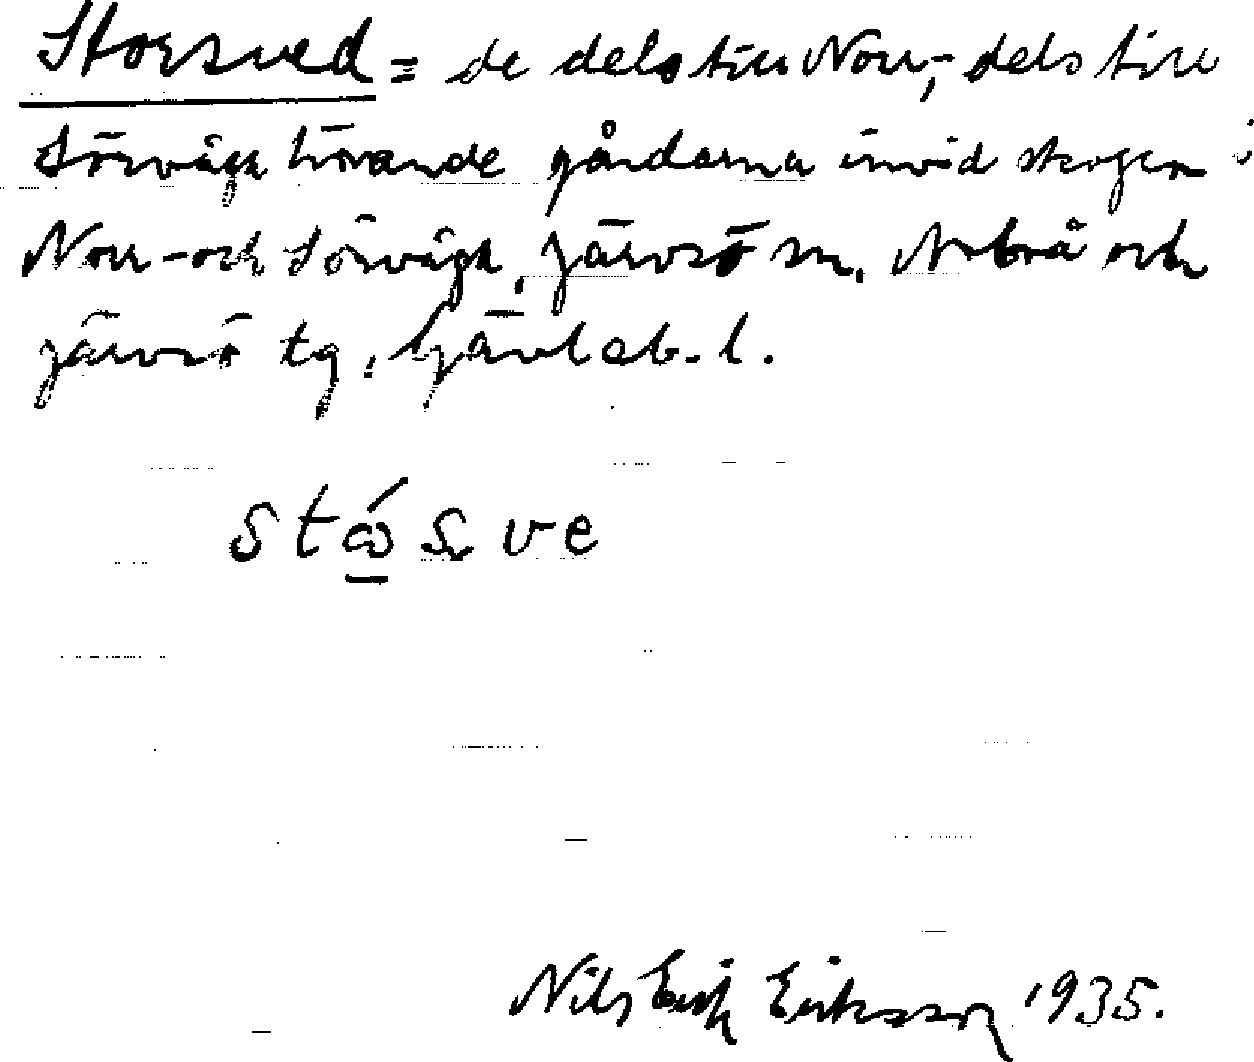 Storsved = de dels till Norr-, dels till
Sörvåga hörande gårdarna invid skogen i
Norr- och Sörvåga, Järvsö sn, N. brå och
Järvsö tg, Gävleb. l.
Nils Erik Eriksson 1935.